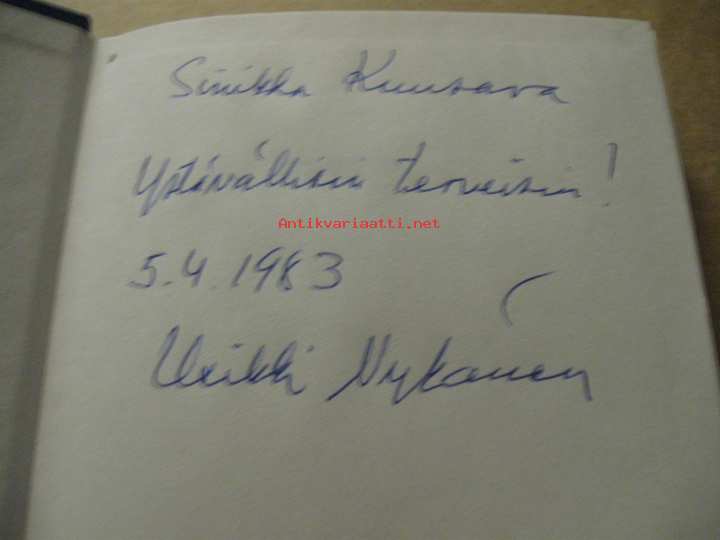 Sinikka Kuusava
Ystävällisin terveisin!
Antikvariaatti.net
5.4.1983
Veikki Nykänen